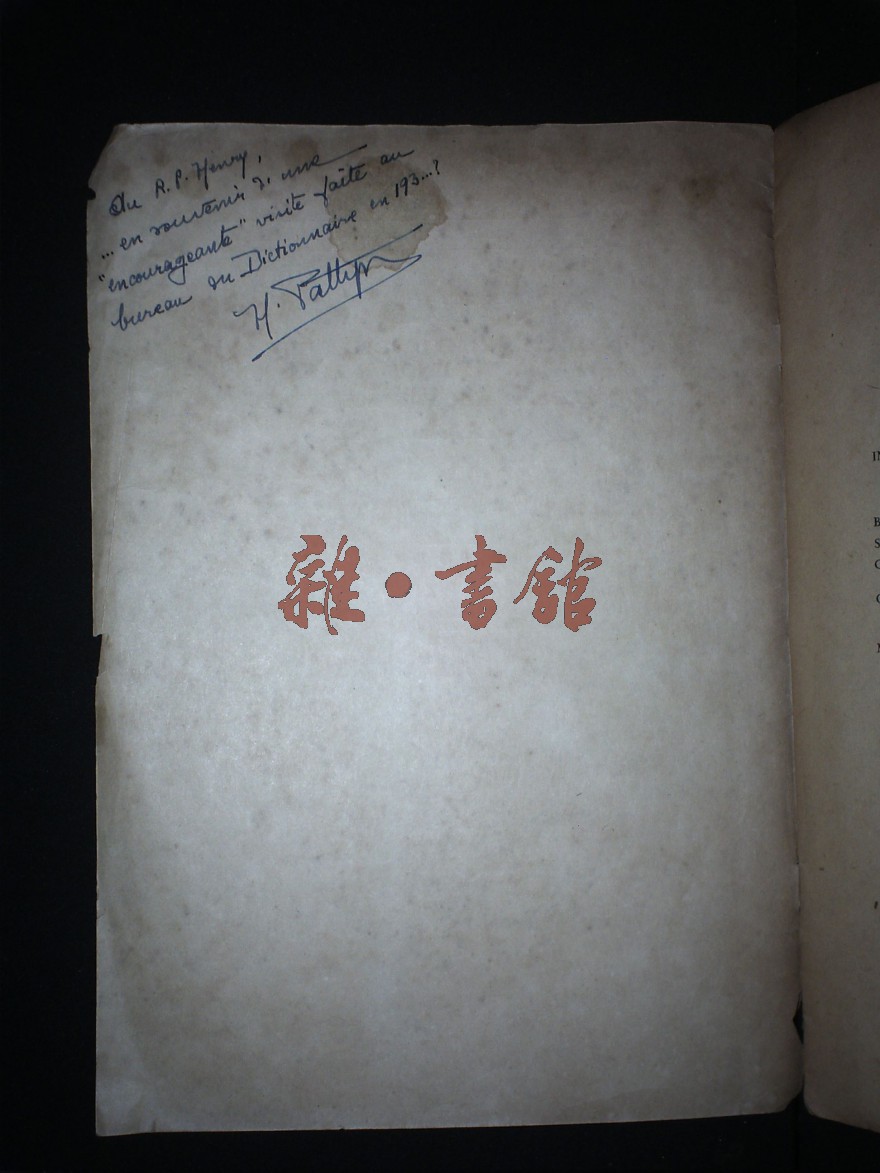 Au R.P. Henry,
... en souvenir d'une
"encourageante" visite faite au
bureau du Dictionnaire en 193...?
H. Pattyn
雜·書館